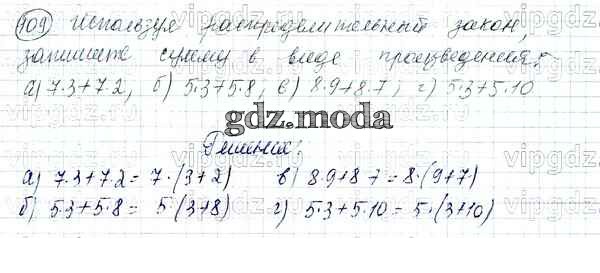 109 Используя распределительный закон,
запишите сумму в виде произведения:
а) 7·3+7·2, б) 5·3+5·8; в) 8·9+8·7; г) 5·3+5·10
gdz.moda
Решение:
а) 7·3+7·2= 7·(3+2) в) 8·9+8·7=8·(9+7)
б) 5·3+5·8= 5·(3+8) г) 5·3+5·10= 5·(3+10)